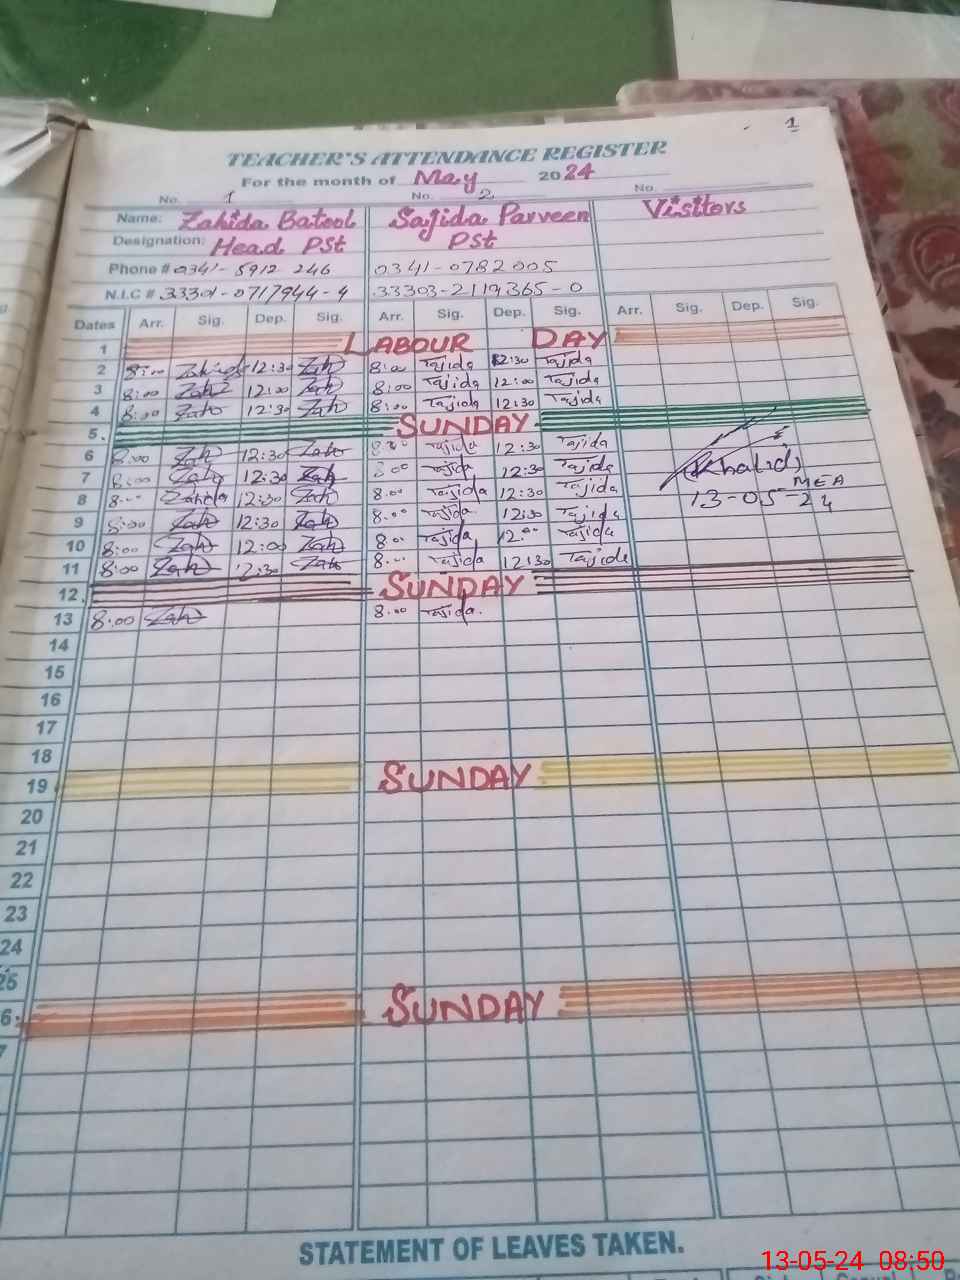 1
TEACHER'S ATTENDANCE REGISTER
For the month of May 2024
No. 1 No. 2 No.
Name: Zahida Batool Sajida Parveen Visitors
Designation: Head PSt PSt
Phone # 0341-5912246 0341-0782005
N.I.C # 33301-0717944-4 33303-2119365-0
Dates Arr. Sig. Dep. Sig. Arr. Sig. Dep. Sig. Arr. Sig. Dep. Sig.
1 LABOUR DAY
2 8:00 Zahida 12:30 Zah 8:00 Tajida 12:30 Tajida
3 8:00 Zah 12:00 Zah 8:00 Tajida 12:00 Tajida
4 8:00 Zah 12:30 Zah 8:00 Tajida 12:30 Tajida
5. SUNDAY
6 8:00 Zah 12:30 Zah 8:00 Tajida 12:30 Tajida
7 8:00 Zah 12:30 Zah 8:00 Tajida 12:30 Tajida (Khalid)
8 8:00 Zahida 12:30 Zah 8:00 Tajida 12:30 Tajida MEA
13-05-24
9 8:00 Zah 12:30 Zah 8:00 Tajida 12:30 Tajida
10 8:00 Zah 12:00 Zah 8:00 Tajida 12:00 Tajida
11 8:00 Zah 12:30 Zah 8:00 Tajida 12:30 Tajida
12. SUNDAY
13 8:00 Zah 8:00 Tajida.
14
15
16
17
18
19 SUNDAY
20
21
22
23
24
25
6. SUNDAY
7
STATEMENT OF LEAVES TAKEN.
13-05-24 08:50